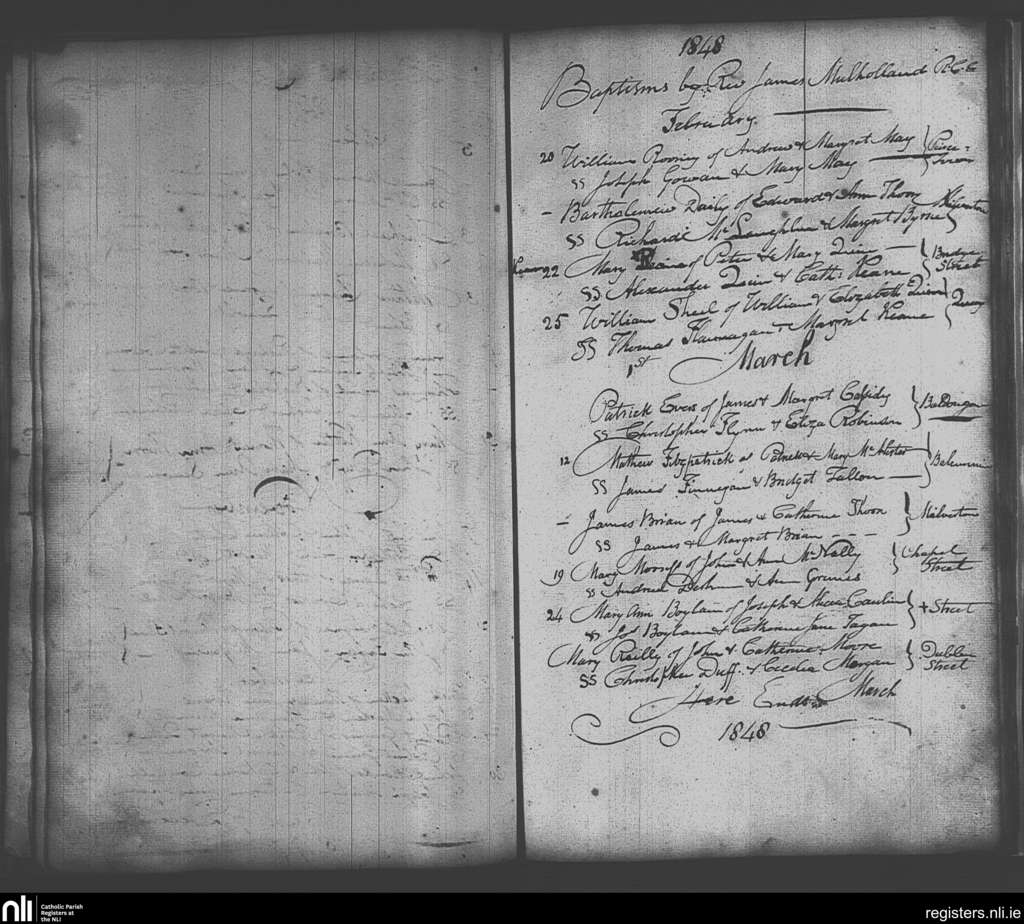 1848
Baptisms by Rev James Mulholland R.C.C
February.
20 William Rooney of Andrew & Margret May
SS Joseph Gowan & Mary May
- Bartholemew Daily of Edward & Ann Thorn Milverton
SS Richard & Margret Byrne
22 Mary of Peter & Mary Quin — Bridge
SS Alexander Quin & Cath: Keane Street
Keane
25 William Sheil of William & Elizabeth Quin Quay
SS Thomas Flannagan & Margret Keane
1st March
Patrick Evers of James & Margret Cassidy Baldongan
SS Christopher Flynn & Eliza Robinson
12 Mathew Fitzpatrick of Patrick & Mary McAlister
SS James Finnegan & Bridget Fallon —
- James Brian of James & Catherine Thorn Milverton
SS James & Margret Brian - - -
19 Mary of John & Ann McNally Chapel
ss Andrew & Ann Grimes Street
24 Mary Ann Boylan of Joseph & Caulin + Street
ss Jos Boylan & Catherine Jane Fagan
Mary Reilly of John & Catherine Moore Dublin
SS Christopher Duff & Cecelia Morgan Street
Here Ends March
1848
nli
Catholic Parish
Registers at
the NLI
registers.nli.ie